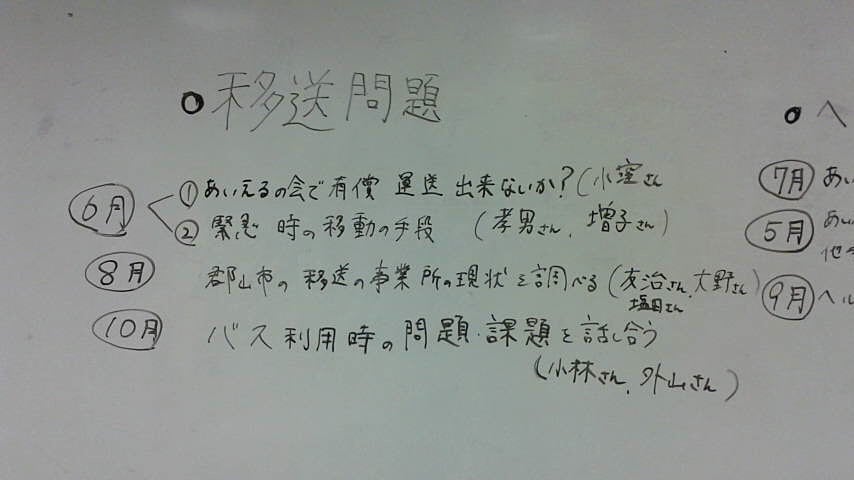 ● 移送問題
6月 ① あいえるの会で有償 運送 出来ないか?(小窪さん
② 緊急 時の移動の手段 (孝男さん、増子さん)
8月 郡山市の 移送の事業所の現状を調べる(友治さん、大野さん)
塩田さん
10月 バス利用時の問題・課題を話し合う
(小林さん、外山さん)
● ヘ
7月 あい
5月 あい
他
9月 ヘル